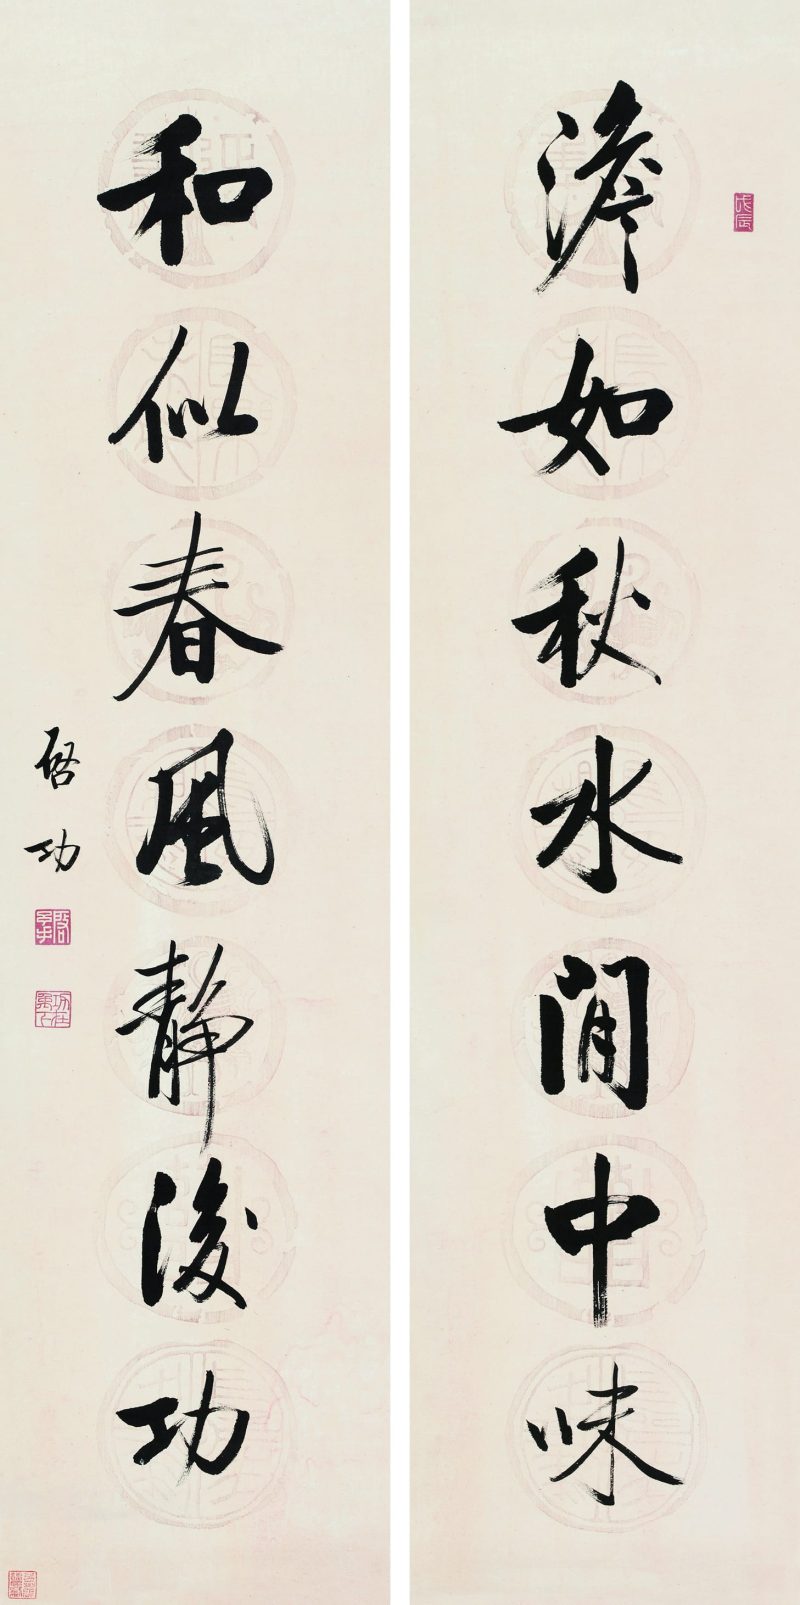 澹如秋水閒中味
和似春風靜後功
啓功
戊辰